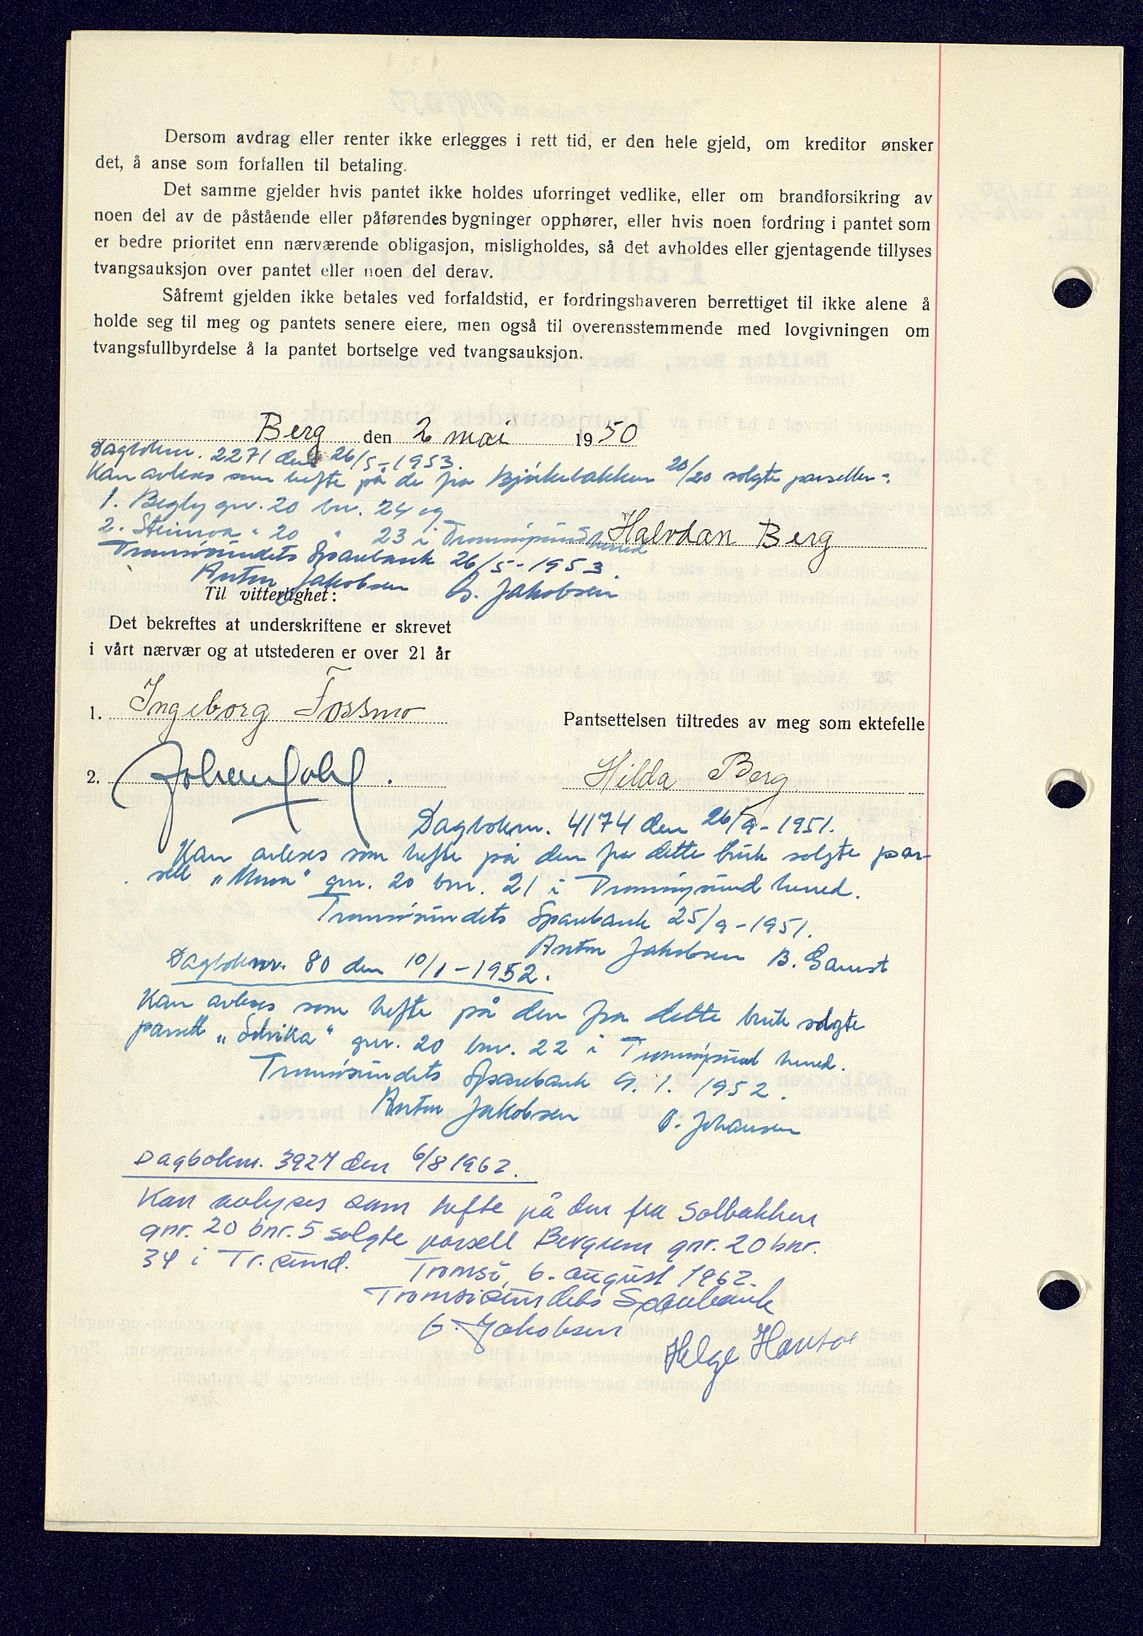 Dersom avdrag eller renter ikke erlegges i rett tid, er den hele gjeld, om kreditor ønsker
det, å anse som forfallen til betaling.
Det samme gjelder hvis pantet ikke holdes uforringet vedlike, eller om brandforsikring av
noen del av de påstående eller påførendes bygninger opphører, eller hvis noen fordring i pantet som
er bedre prioritet enn nærværende obligasjon, misligholdes, så det avholdes eller gjentagende tillyses
tvangsauksjon over pantet eller noen del derav.
Såfremt gjelden ikke betales ved forfaldstid, er fordringshaveren berrettiget til ikke alene å
holde seg til meg og pantets senere eiere, men også til overensstemmende med lovgivningen om
tvangsfullbyrdelse å la pantet bortselge ved tvangsauksjon.
Berg den 2 mai 1950
Dagboknr. 2271 den 26/5-1953.
Kan avleses som hefte på de fra Bjørkebakken 20/20 solgte parseller:
1. Begly gnr. 20 bnr. 24 og
2. " 20 " 23 i Tromsøysund herred
Halvdan Berg
Tromsøsundets Sparebank 26/5-1953.
Anton Jakobsen G. Jakobsen
Til vitterlighet:
Det bekreftes at underskriftene er skrevet
i vårt nærvær og at utstederen er over 21 år
1. Ingeborg Fossmo
Pantsettelsen tiltredes av meg som ektefelle
2.
Hilda Berg
Dagboknr. 4174 den 26/9-1951.
Kan avleses som hefte på den fra dette bruk solgte par-
sell gnr. 20 bnr. 21 i Tromsøysund herred.
Tromsøsundets Sparebank 25/9-1951.
Anton Jakobsen B. Gamst
Dagboknr. 80 den 10/1-1952.
Kan avleses som hefte på den fra dette bruk solgte
parsell "Solvika" gnr. 20 bnr. 22 i Tromsøysund herred.
Tromsøsundets Sparebank 9.1.1952.
Anton Jakobsen O. Johansen
Dagboknr. 3927 den 6/8 1962.
Kan avlyses som hefte på den fra Solbakken
gnr. 20 bnr. 5 solgte parsell Bergum gnr. 20 bnr.
34 i Tr.sund. Tromsö, 6. august 1962.
Tromsösundets Sparebank
G. Jakobsen
Helge